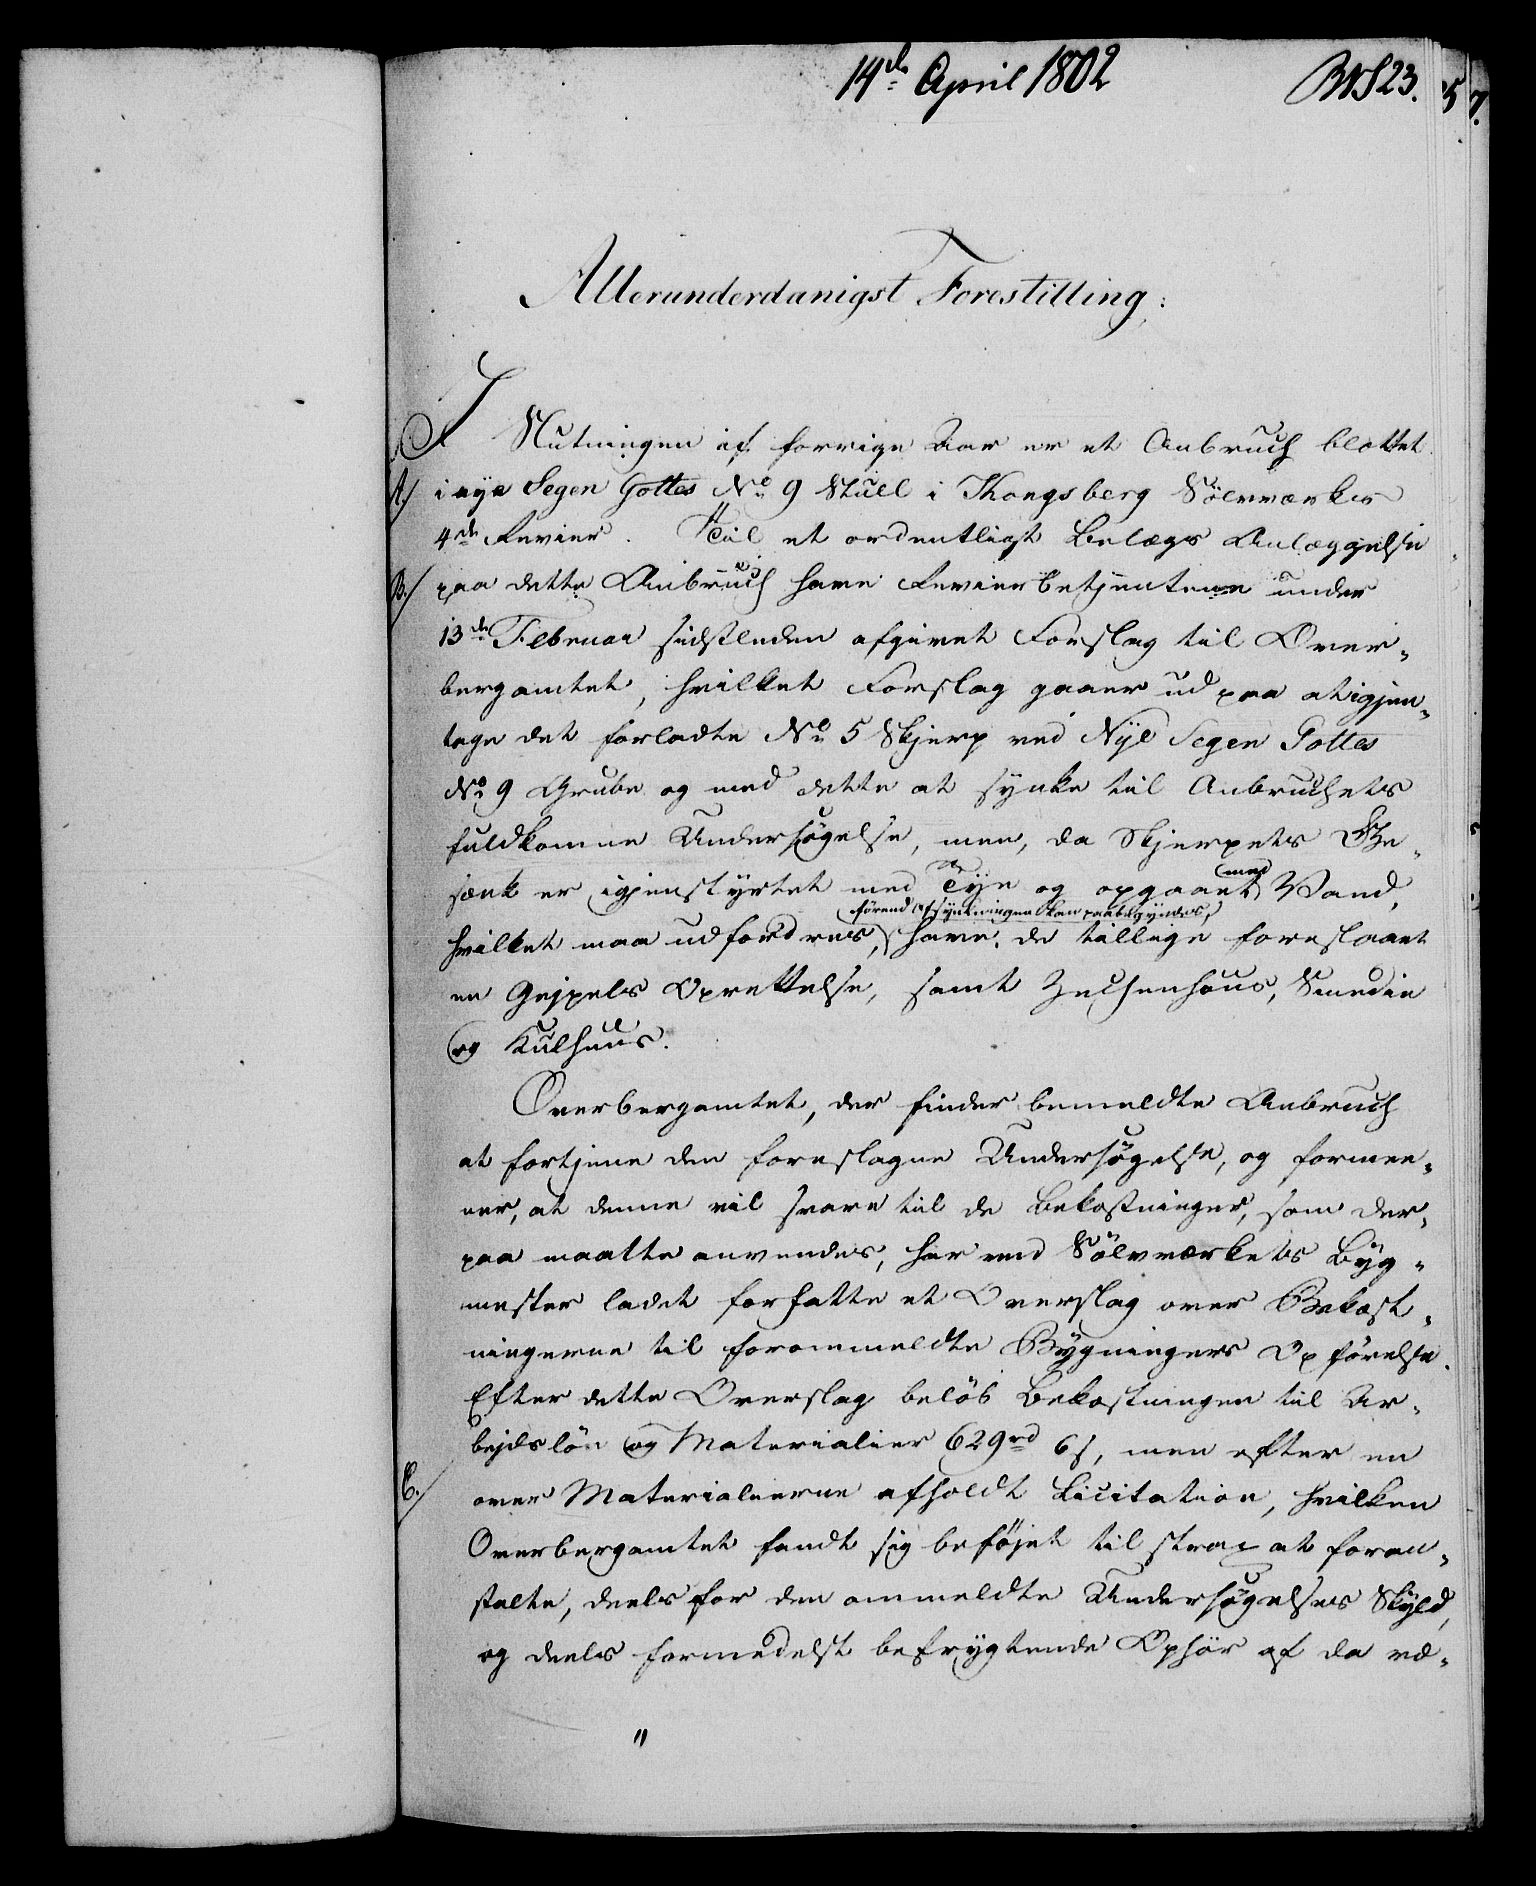 14de April 1802
Allerunderdanigst Forestilling:
I Slutningen af forrige Aar er et Anbruch blottet
A./ i nye Segen Gottes No 9 Stull i Kongsberg Sölvværks
4de Revier. Til et ordentligt Belægs Anlæggelse
B./ paa dette Anbruch have Revierbetjentene under
13de Februar sidstleden afgivet Forslag til Over-
bergamtet, hvilket Forslag gaaer ud paa at igjen-
tage det forladte No 5 Skjerp ved Nye Segen Gottes
No 9 Grube og med dette at synke til Anbruchets
fuldkomne Undersögelse, men, da Skjerpets Ge-
sænk er igjenstyrtet med og opgaaet med Vand,
förend Afsynkningen kan paabegyndes,
hvilket maa udfordres, have de tillige foreslaaet
en Gejpels Oprettelse, samt Zechenhuus, Smedie
og Kulhuus.
Overbergamtet, der finder bemeldte Anbruch
at fortjene den foreslagne Undersögelse, og formee-
ner, at denne vil svare til de Bekostninger, som der-
paa maatte anvendes, har ved Sölvværkets Byg-
mester ladet forfatte et Overslag over Bekost-
ningerne til forommeldte Bygningers Opförelse.
Efter dette Overslag belöb Bekostningen til Ar-
bejdslön og Materialier 629rd 6s, men efter en
C./ over Materialierne afholdt Licitation, hvilken
Overbergamtet fandt sig beföjet til strax at foran-
stalte, deels for den ommeldte Undersögelses Skyld,
og deels formedelst befrygtende Ophör af da væ-
"